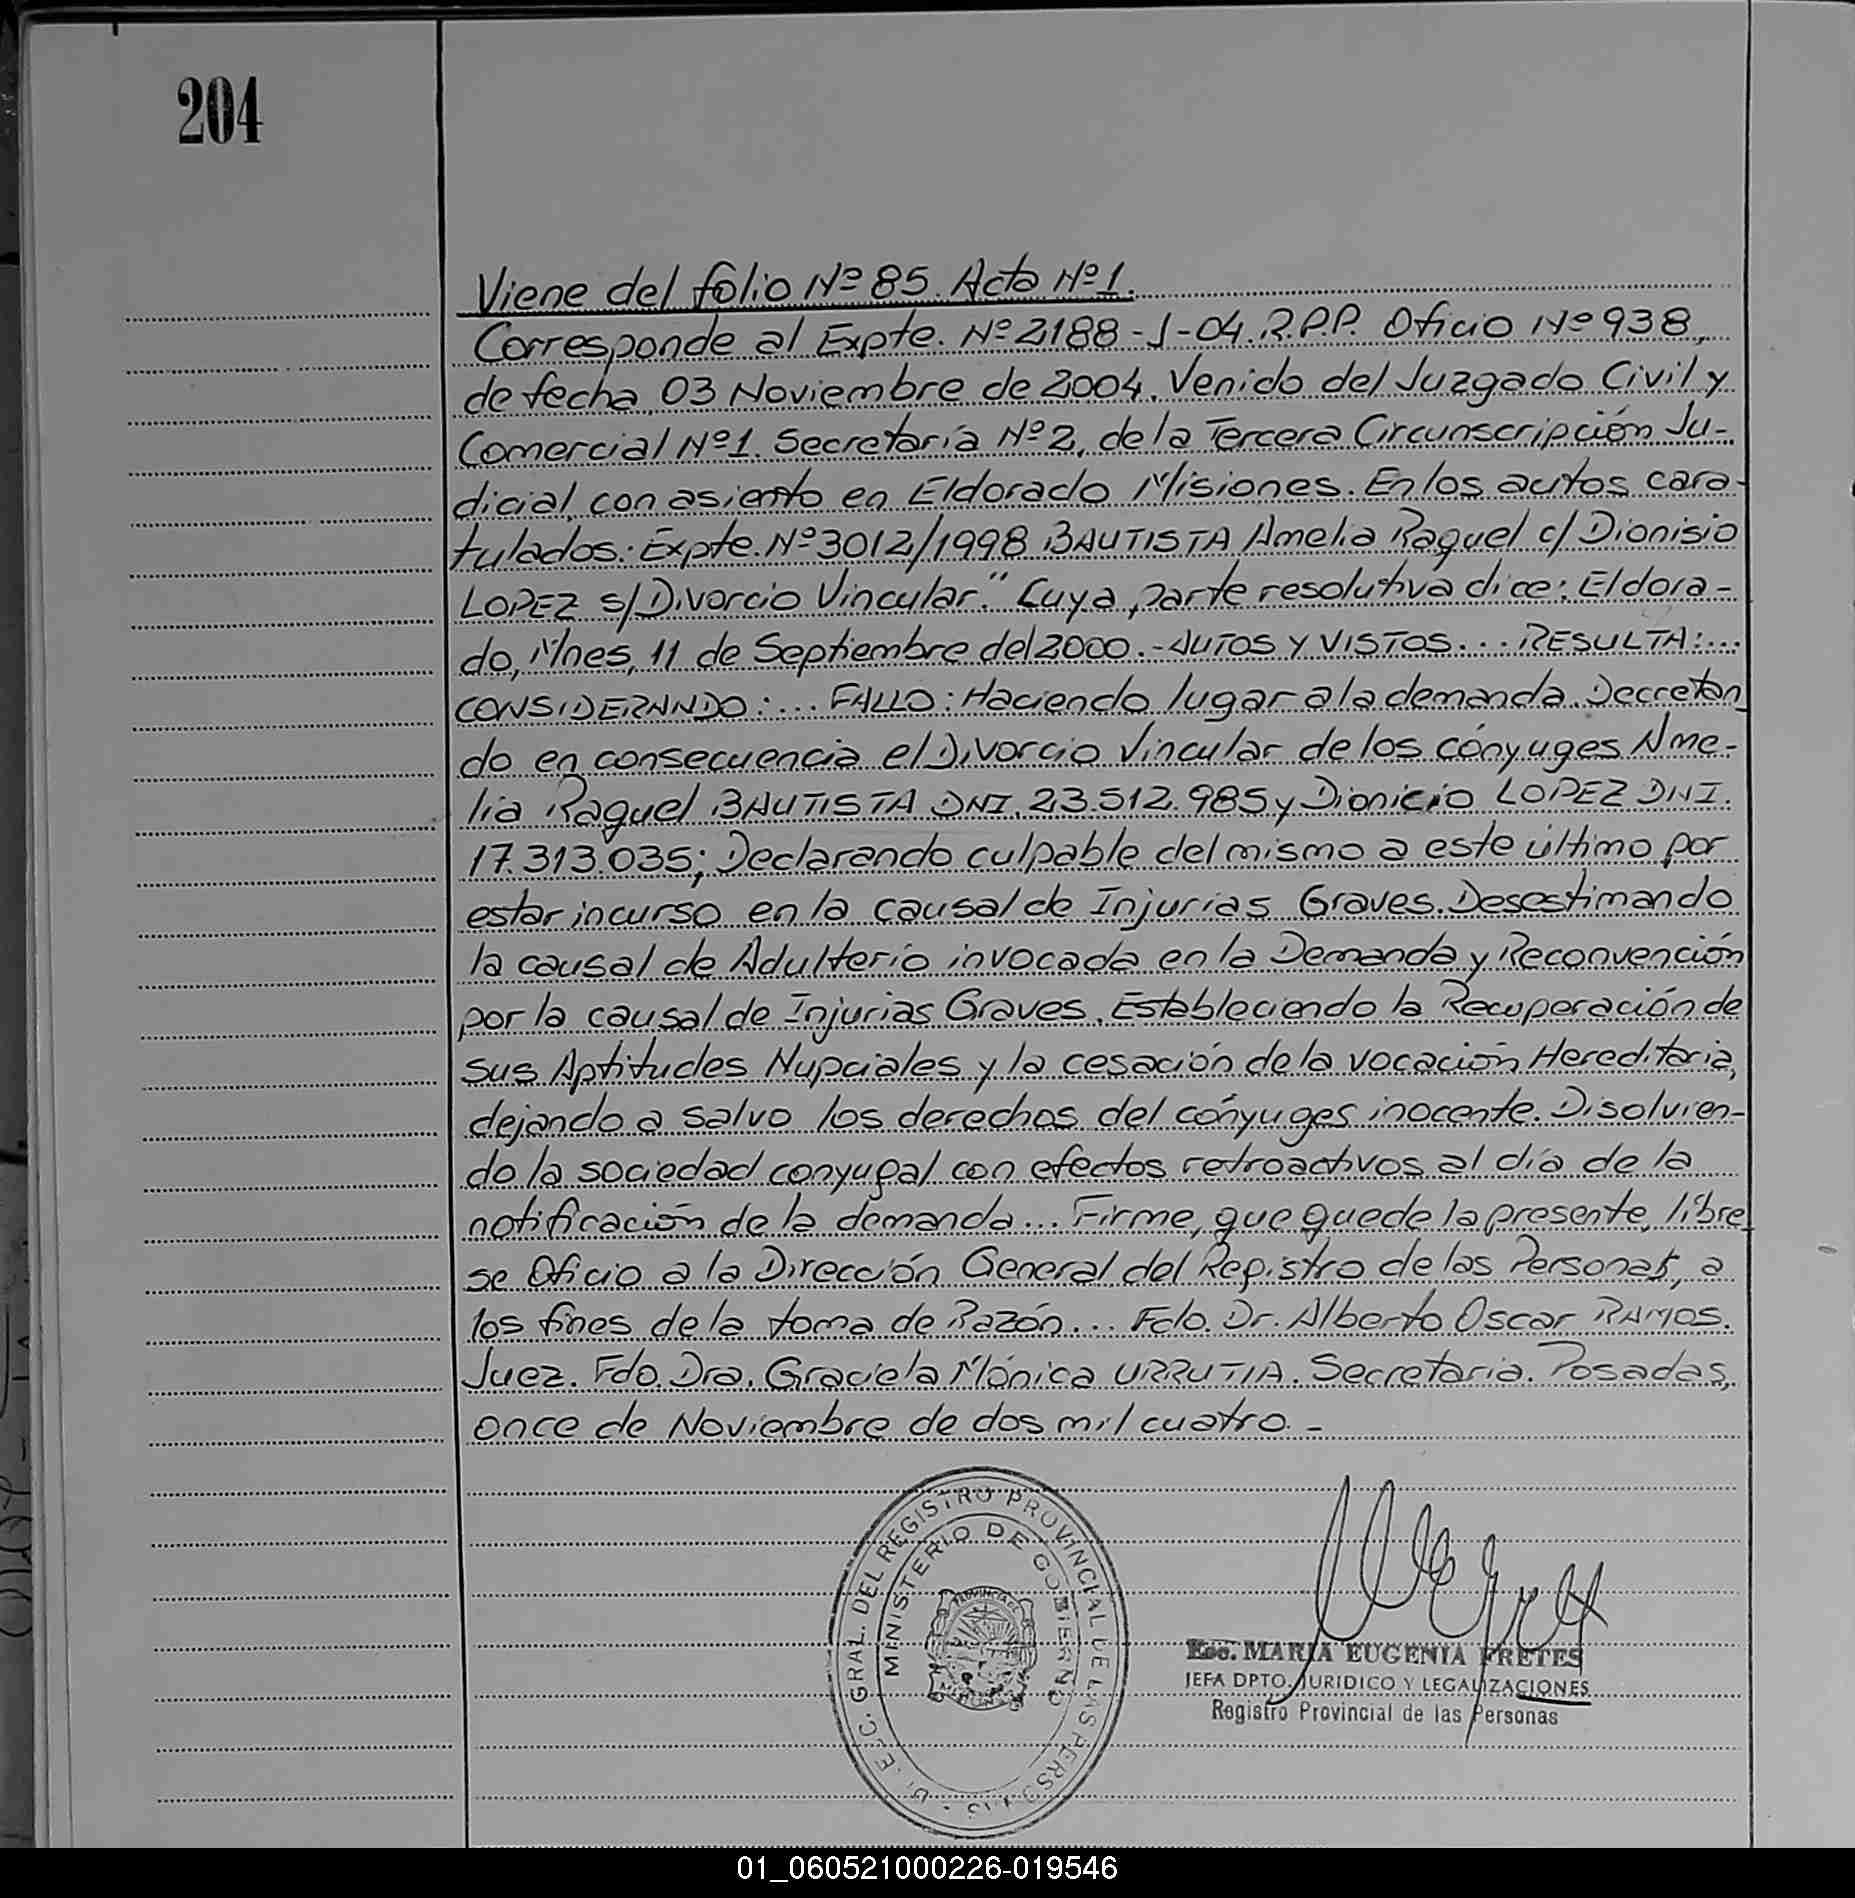 204
Viene del folio Nº 85. Acta Nº 1.
Corresponde al Expte. Nº 2188-J-04.R.P.P. Oficio Nº 938,
de fecha 03 Noviembre de 2004. Venido del Juzgado Civil y
Comercial Nº 1. Secretaría Nº 2, de la Tercera Circunscripción Ju-
dicial con asiento en Eldorado Misiones. En los autos cara-
tulados: Expte. Nº 3012/1998 BAUTISTA Amelia Raquel c/ Dionisio
LOPEZ s/ Divorcio Vincular." Cuya parte resolutiva dice: Eldora-
do, Mnes, 11 de Septiembre del 2000.- AUTOS Y VISTOS... RESULTA:...
CONSIDERANDO:... FALLO: Haciendo lugar a la demanda. Decretan
do en consecuencia el Divorcio Vincular de los cónyuges Ame-
lia Raquel BAUTISTA DNI. 23.512.985 y Dionicio LOPEZ DNI.
17.313.035; Declarando culpable del mismo a este último por
estar incurso en la causal de Injurias Graves. Desestimando
la causal de Adulterio invocada en la Demanda y Reconvención
por la causal de Injurias Graves. Estableciendo la Recuperación de
sus Aptitudes Nupciales y la cesación de la vocación Hereditaria,
dejando a salvo los derechos del cónyuges inocente. Disolvien-
do la sociedad conyugal con efectos retroactivos al día de la
notificación de la demanda... Firme, que quede la presente, libre
se Oficio a la Dirección General del Registro de las Personas, a
los fines de la toma de Razón... Fdo. Dr. Alberto Oscar RAMOS.
Juez. Fdo. Dra. Graciela Mónica URRUTIA. Secretaria. Posadas,
once de Noviembre de dos mil cuatro.-
GRAL. DEL REGISTRO PROVINCIAL DE LAS PERSONAS
MINISTERIO DE GOBIERNO
Esc. MARIA EUGENIA FRETES
JEFA DPTO. JURIDICO Y LEGALIZACIONES
Registro Provincial de las Personas
01_060521000226-019546